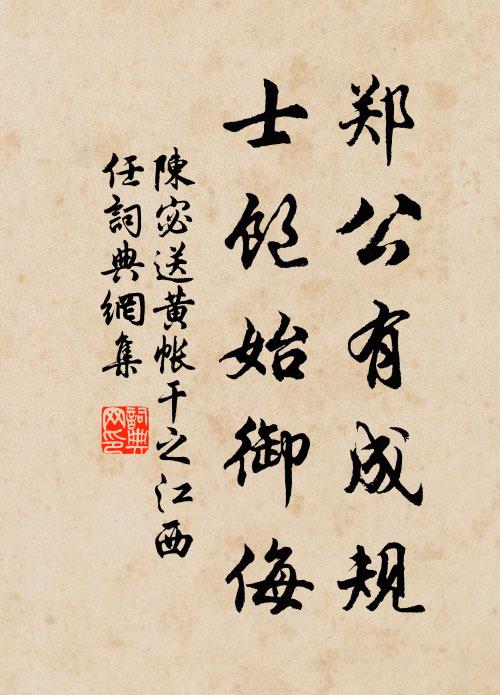 郑公有成规
士饱始御侮
陳宓送黄帳干之江西
任詞典網集
詞典网印